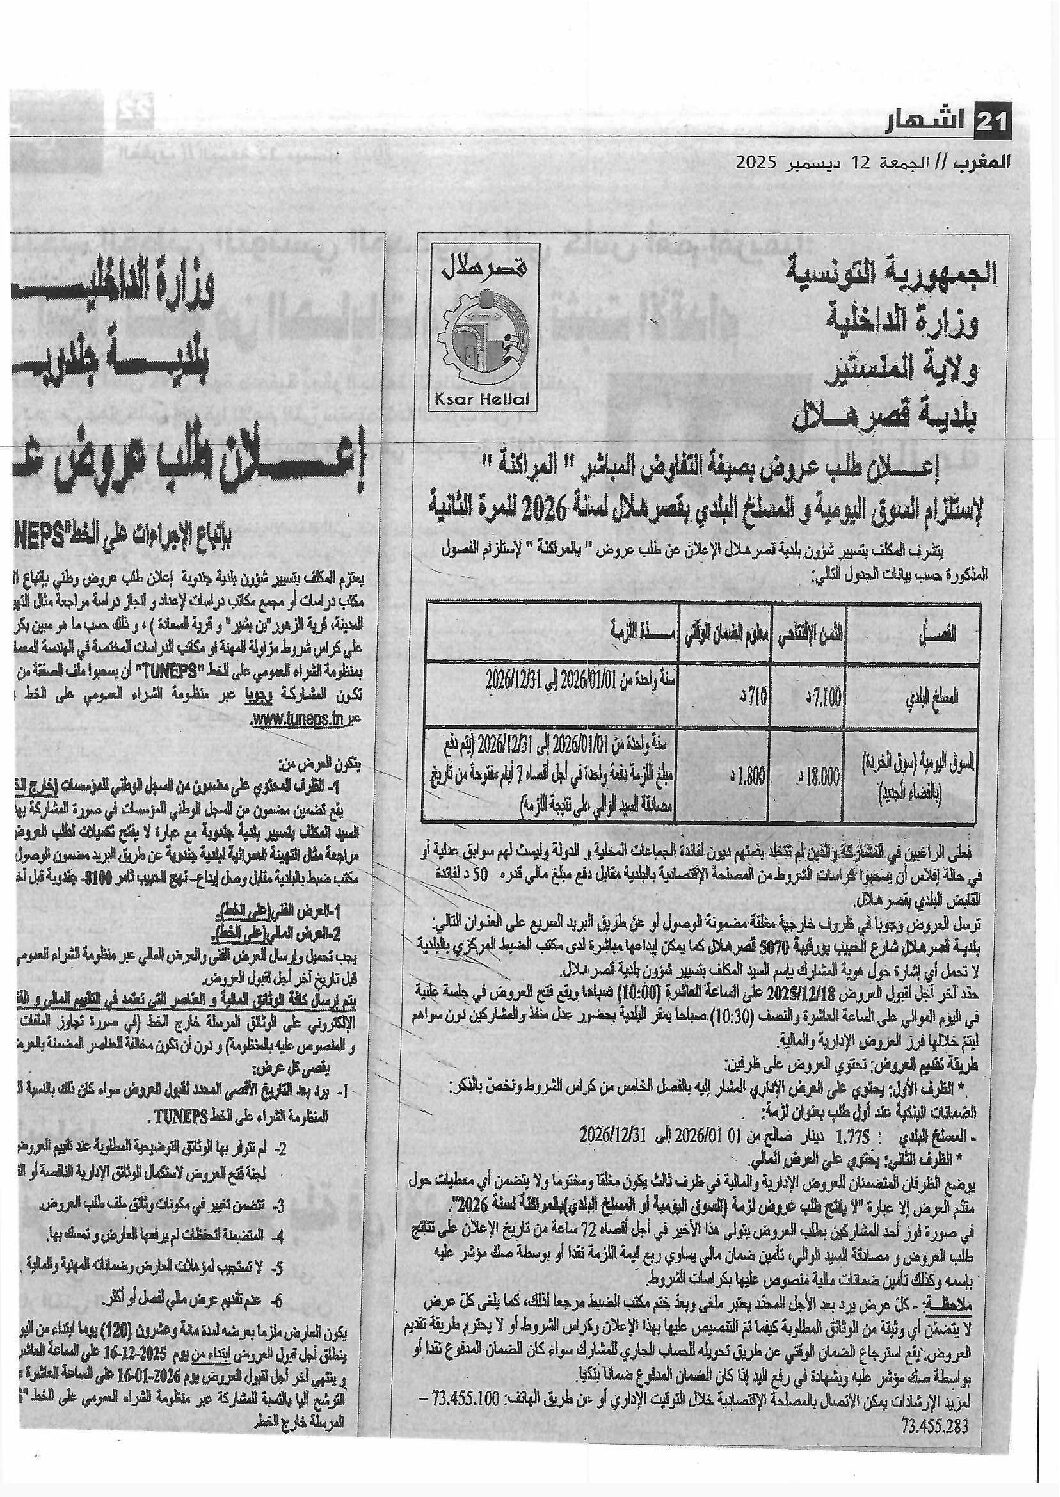 21 اشهار
المغرب // الجمعة 12 ديسمبر 2025
الجمهورية التونسية
وزارة الداخلية
ولاية المنستير
بلدية قصر هلال
قصر هلال
Ksar Hellal
إعــــلان طلب عروض بصيغة التفاوض المباشر " المراكنة "
لإستلزام السوق اليومية و المسلخ البلدي بقصر هلال لسنة 2026 للمرة الثانية
يتشرف المكلف بتسيير شؤون بلدية قصر هلال الإعلان عن طلب عروض " بالمراكنة " لإستلزام الفصول
المذكورة حسب بيانات الجدول التالي:
الفصــل | الثمن الإفتتاحي | معلوم الضمان الوقتي | مــدة اللزمة
المسلخ البلدي | 7.100 د | 710 د | سنة واحدة من 2026/01/01 إلى 2026/12/31
السوق اليومية (سوق الخردة) (بالفضاء الجديد) | 18.000 د | 1.800 د | سنة واحدة من 2026/01/01 إلى 2026/12/31 (يتم دفع
مبلغ اللزمة دفعة واحدة في أجل أقصاه 7 أيام مفتوحة من تاريخ
مصادقة السيد الوالي على نتيجة اللزمة)
فعلى الراغبين في المشاركة والذين لم تتخلد بذمتهم ديون لفائدة الجماعات المحلية و الدولة وليست لهم سوابق عدلية أو
في حالة إفلاس أن يسحبوا كراسات الشروط من المصلحة الإقتصادية بالبلدية مقابل دفع مبلغ مالي قدره 50 د لفائدة
القابض البلدي بقصر هلال.
ترسل العروض وجوبا في ظروف خارجية مغلقة مضمونة الوصول أو عن طريق البريد السريع على العنوان التالي:
بلدية قصر هلال شارع الحبيب بورقيبة 5070 قصر هلال كما يمكن إيداعها مباشرة لدى مكتب الضبط المركزي بالبلدية
لا تحمل أي إشارة حول هوية المشارك باسم السيد المكلف بتسيير شؤون بلدية قصر هلال.
حدد آخر أجل لقبول العروض 2025/12/18 على الساعة العاشرة (10:00) صباحا ويقع فتح العروض في جلسة علنية
في اليوم الموالي على الساعة العاشرة والنصف (10:30) صباحا بمقر البلدية بحضور عدل منفذ والمشاركين دون سواهم
ليتم خلالها فرز العروض الإدارية والمالية.
طريقة تقديم العروض: تحتوي العروض على ظرفين:
* الظرف الأول: يحتوي على العرض الإداري المشار إليه بالفصل الخامس من كراس الشروط ونخص بالذكر:
الضمانات البنكية عند أول طلب بعنوان لزمة:
- المسلخ البلدي : 1.775 دينار صالح من 01 2026/01 إلى 2026/12/31
* الظرف الثاني: يحتوي على العرض المالي.
يوضع الظرفان المتضمنان للعروض الإدارية والمالية في ظرف ثالث يكون مغلقا ومختوما ولا يتضمن أي معطيات حول
مقدم العرض إلا عبارة "لا يفتح طلب عروض لزمة (السوق اليومية أو المسلخ البلدي) بالمراكنة لسنة 2026".
في صورة فوز أحد المشاركين بطلب العروض يتولى هذا الأخير في أجل أقصاه 72 ساعة من تاريخ الإعلان على نتائج
طلب العروض و مصادقة السيد الوالي، تأمين ضمان مالي يساوي ربع قيمة اللزمة نقدا أو بوسطة صك مؤشر عليه
باسمه وكذلك تأمين ضمانات مالية منصوص عليها بكراسات الشروط.
ملاحظة: - كل عرض يرد بعد الأجل المحدد يعتبر ملغى وبعد ختم مكتب الضبط مرجعا لذلك، كما يلغى كل عرض
لا يتضمن أي وثيقة من الوثائق المطلوبة كيفما تم التنصيص عليها بهذا الإعلان وكراس الشروط أو لا يحترم طريقة تقديم
العروض. يقع استرجاع الضمان الوقتي عن طريق تحويله للحساب الجاري للمشارك سواء كان الضمان المدفوع نقدا أو
بواسطة صك مؤشر عليه وبشهادة في رفع اليد إذا كان الضمان المدفوع ضمانا بنكيا.
لمزيد الإرشادات يمكن الاتصال بالمصلحة الإقتصادية خلال التوقيت الإداري أو عن طريق الهاتف: 73.455.100 –
73.455.283
وزارة الداخليـــ
بلديـــة جندوبـ
إعــــلان طلب عروض
بإتباع الإجراءات على الخط "NEPS
يعتزم المكلف بتسيير شؤون بلدية جندوبة إعلان طلب عروض وطني بإتباع
مكاتب دراسات أو مجمع مكاتب دراسات لإعداد و إنجاز دراسة مراجعة مثال
المدينة، قرية الزهور "بن بشير" و قرية السعادة ) ، و ذلك حسب ما هو مبين
على كراس شروط مزاولة المهنة أو مكاتب الدراسات المختصة في الهندسة
بمنظومة الشراء العمومي على الخط "TUNEPS" أن يسحبوا ملف الصفقة من
تكون المشاركة وجوبا عبر منظومة الشراء العمومي على الخط
عبر www.tuneps.tn.
يتكون العرض من:
1- الظرف المحتوي على مضمون من السجل الوطني للمؤسسات (خارج
يقع تضمين مضمون من السجل الوطني المؤسسات في صورة المشاركة
السيد المكلف بتسيير بلدية جندوبة مع عبارة لا يفتح تكميلات لطلب
مراجعة مثال التهيئة العمرانية لبلدية جندوبة عن طريق البريد مضمون الوصول
مكتب ضبط بالبلدية مقابل وصل إيداع- نهج الحبيب ثامر 8100- جندوبة قبل
1-العرض الفني (على الخط).
2-العرض المالي (على الخط).
يجب تحميل وإرسال العرض الفني والعرض المالي عبر منظومة الشراء
قبل تاريخ آخر أجل لقبول العروض.
يتم إرسال كافة الوثائق المالية و العناصر التي تعتمد في التقييم المالي و
الإلكتروني على الوثائق المرسلة خارج الخط (في صورة تجاوز الملفات
و المنصوص عليه بالمنظومة) و دون أن تكون مخالفة للعناصر المضمنة
يقصى كل عرض:
1- يرد بعد التاريخ الأقصى المحدد لقبول العروض سواء كان ذلك بالنسبة
المنظومة الشراء على الخط TUNEPS .
2- لم تتوفر بها الوثائق التوضيحية المطلوبة عند تقييم
لجنة فتح العروض لاستكمال الوثائق الإدارية الناقصة أو
3- تتضمن تغيير في مكونات وثائق ملف طلب العروض.
4- المتضمنة لتحفظات لم يرفعها العارض و تمسك بها.
5- لا تستجيب لمؤهلات العارض وضماناته المهنية والمالية
6- عدم تقديم عرض مالي لفصل أو أكثر.
يكون العارض ملزما بعرضه لمدة مائة وعشرون (120) يوما ابتداء من
ينطلق أجل قبول العروض ابتداء من يوم 2025-12-16 على الساعة
و ينتهي آخر أجل لقبول العروض يوم 2026-01-16 على الساعة العاشرة
الترشح آليا بالنسبة للمشاركة عبر منظومة الشراء العمومي على الخط
المرسلة خارج الخط